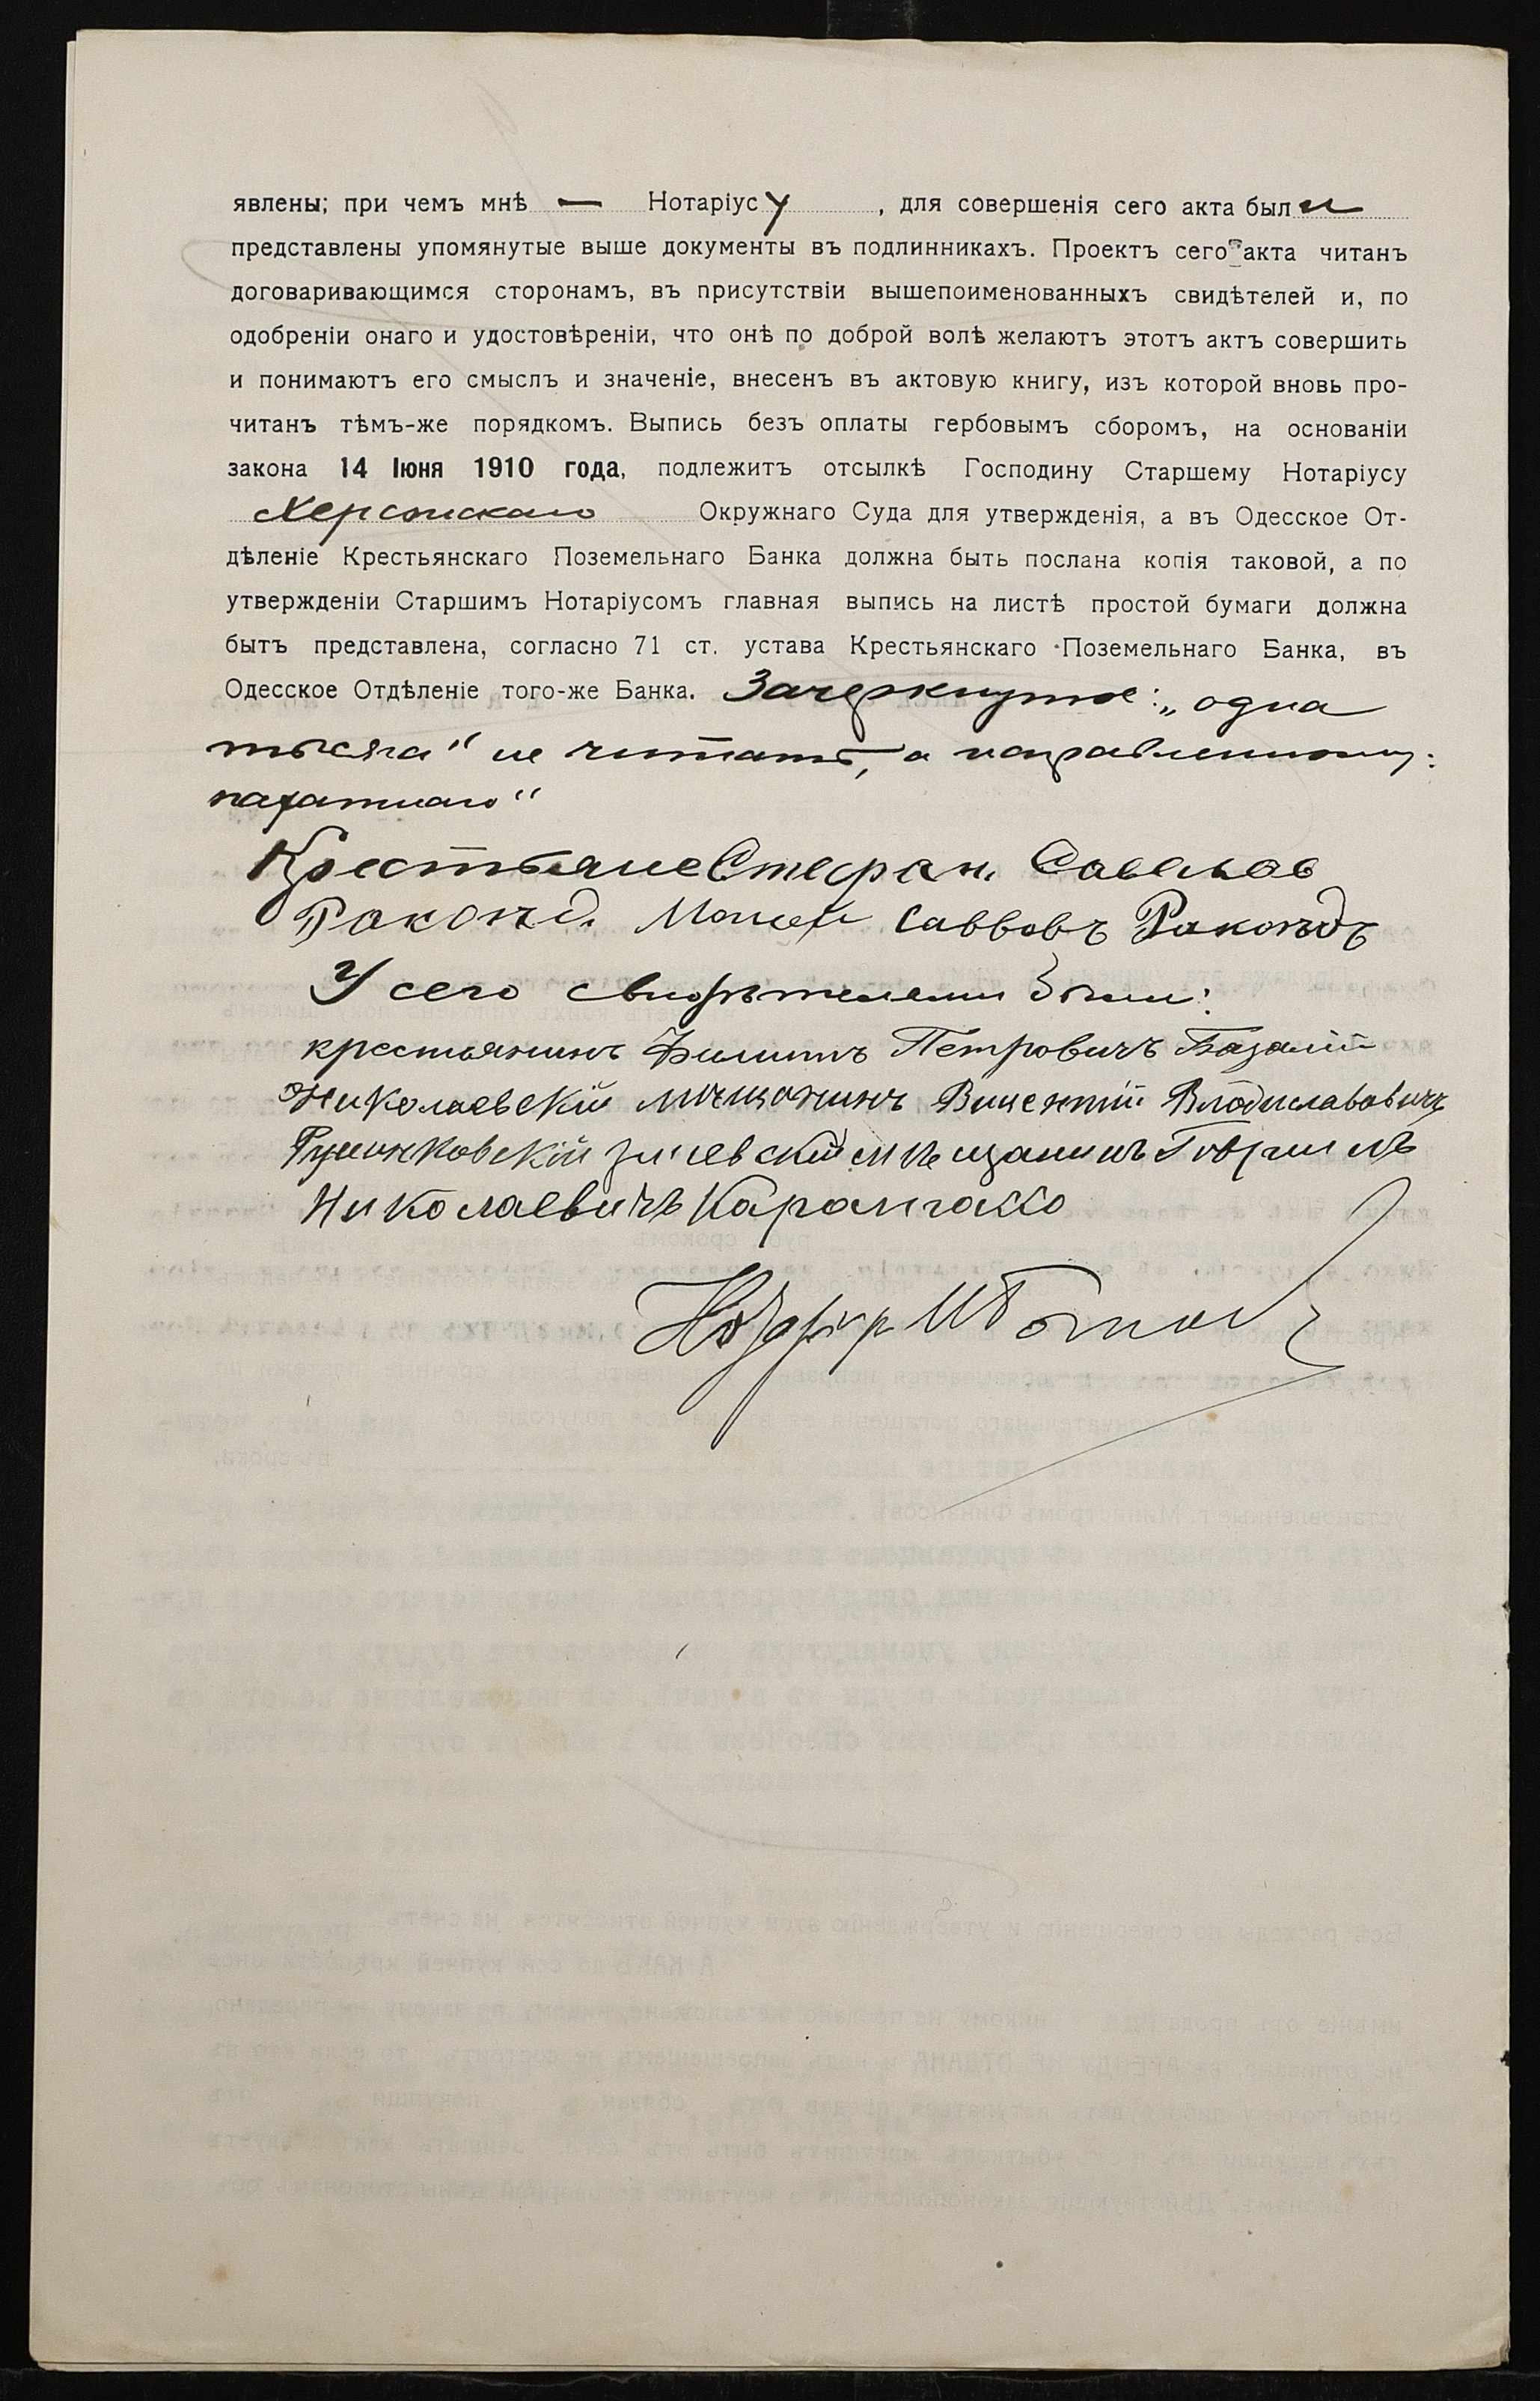 явлены; при чемъ мнѣ — Нотаріусу, для совершенія сего акта были
представлены упомянутые выше документы въ подлинникахъ. Проектъ сего акта читанъ
договаривающимся сторонамъ, въ присутствіи вышепоименованныхъ свидѣтелей и, по
одобреніи онаго и удостовѣреніи, что онѣ по доброй волѣ желаютъ этотъ актъ совершить
и понимаютъ его смыслъ и значеніе, внесенъ въ актовую книгу, изъ которой вновь про-
читанъ тѣмъ-же порядкомъ. Выпись безъ оплаты гербовымъ сборомъ, на основаніи
закона 14 Іюня 1910 года, подлежитъ отсылкѣ Господину Старшему Нотаріусу
Херсонскаго Окружнаго Суда для утвержденія, а въ Одесское От-
дѣленіе Крестьянскаго Поземельнаго Банка должна быть послана копія таковой, а по
утвержденіи Старшимъ Нотаріусомъ главная выпись на листѣ простой бумаги должна
быть представлена, согласно 71 ст. устава Крестьянскаго Поземельнаго Банка, въ
Одесское Отдѣленіе того-же Банка. Зачеркнутое: „одна
тысяча" не читать, а исправленному:
пахатнаго"
Крестьяне Стефан Савельев
Моисей Саввовъ
У сего свидѣтелями были:
крестьянинъ Филиппъ Петровичъ Базалій
Николаевскій мѣщанинъ Викентій Владиславовичъ
мѣщанинъ Гавріилъ
Николаевичъ
Нотаріусъ